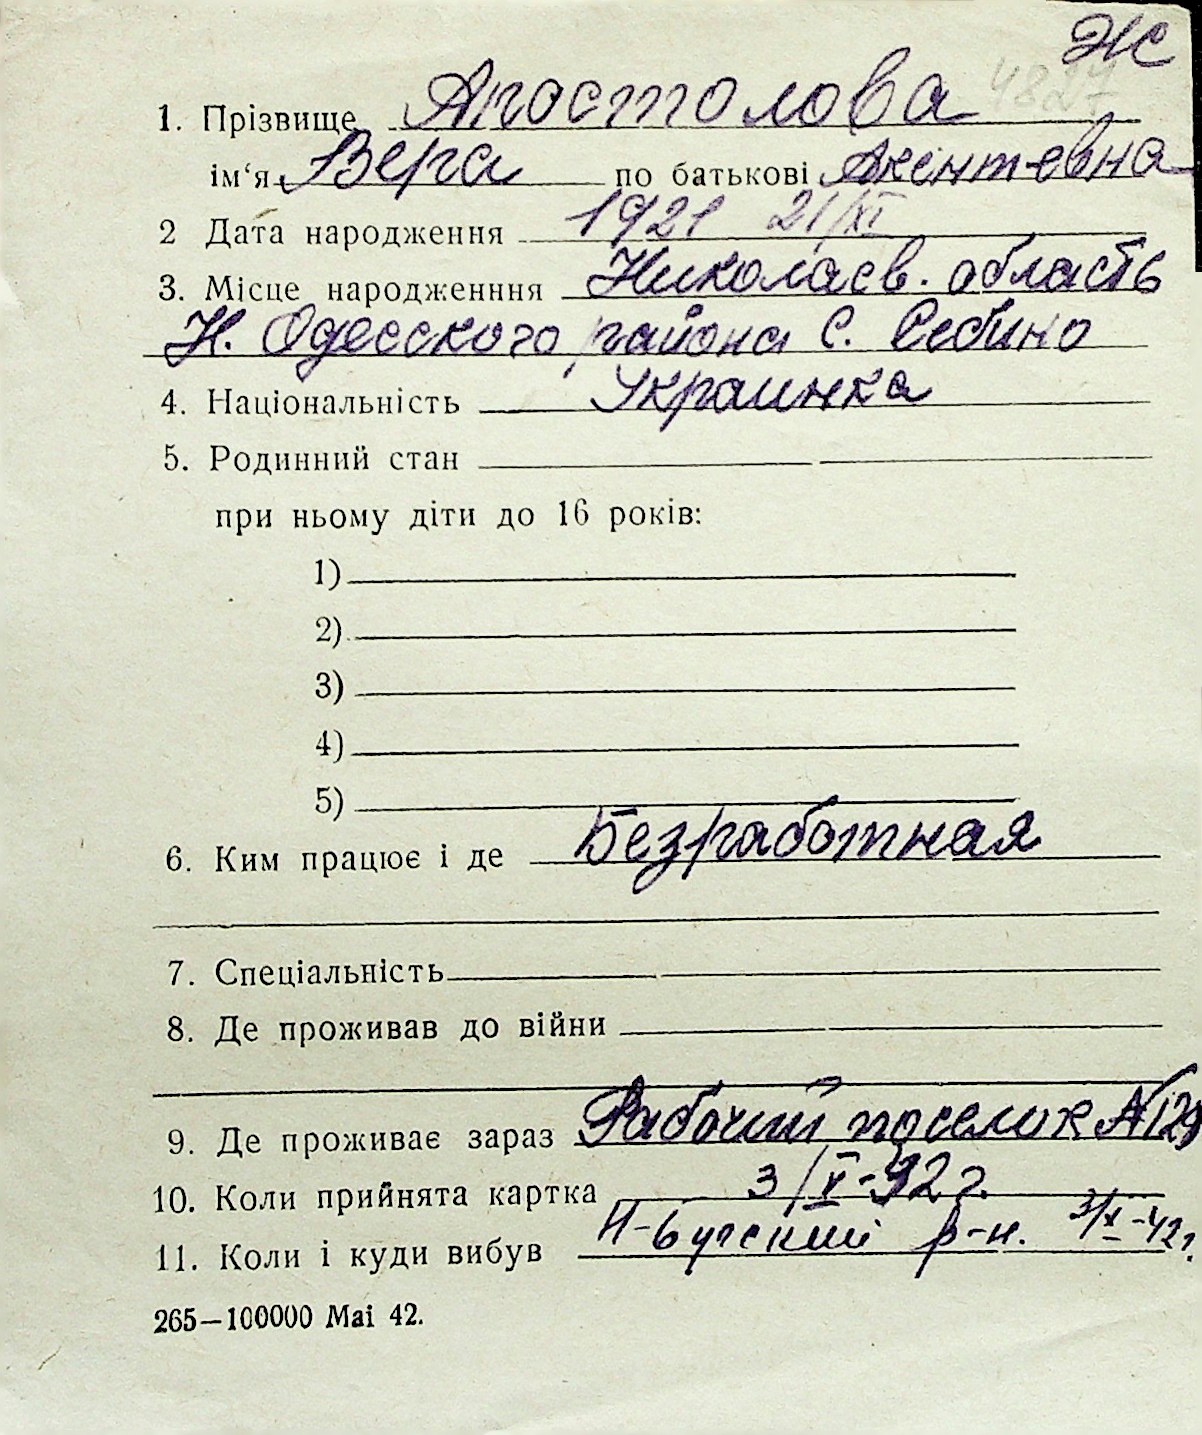 Жс
4827
1. Прізвище Апостолова
ім‘я Вера по батькові Акентевна
2 Дата народження 1921 21/XI
3. Місце народженння Николаев. область
Н. Одесского района с. Себино
4. Національність Украинка
5. Родинний стан
при ньому діти до 16 років:
1)
2)
3)
4)
5)
6. Ким працює і де Безработная
7. Спеціальність
8. Де проживав до війни
9. Де проживає зараз Рабочий поселок №129
10. Коли прийнята картка 3/X-42 г.
11. Коли і куди вибув Н-Бугский р-н. 3/X-42 г.
265—100000 Mai 42.